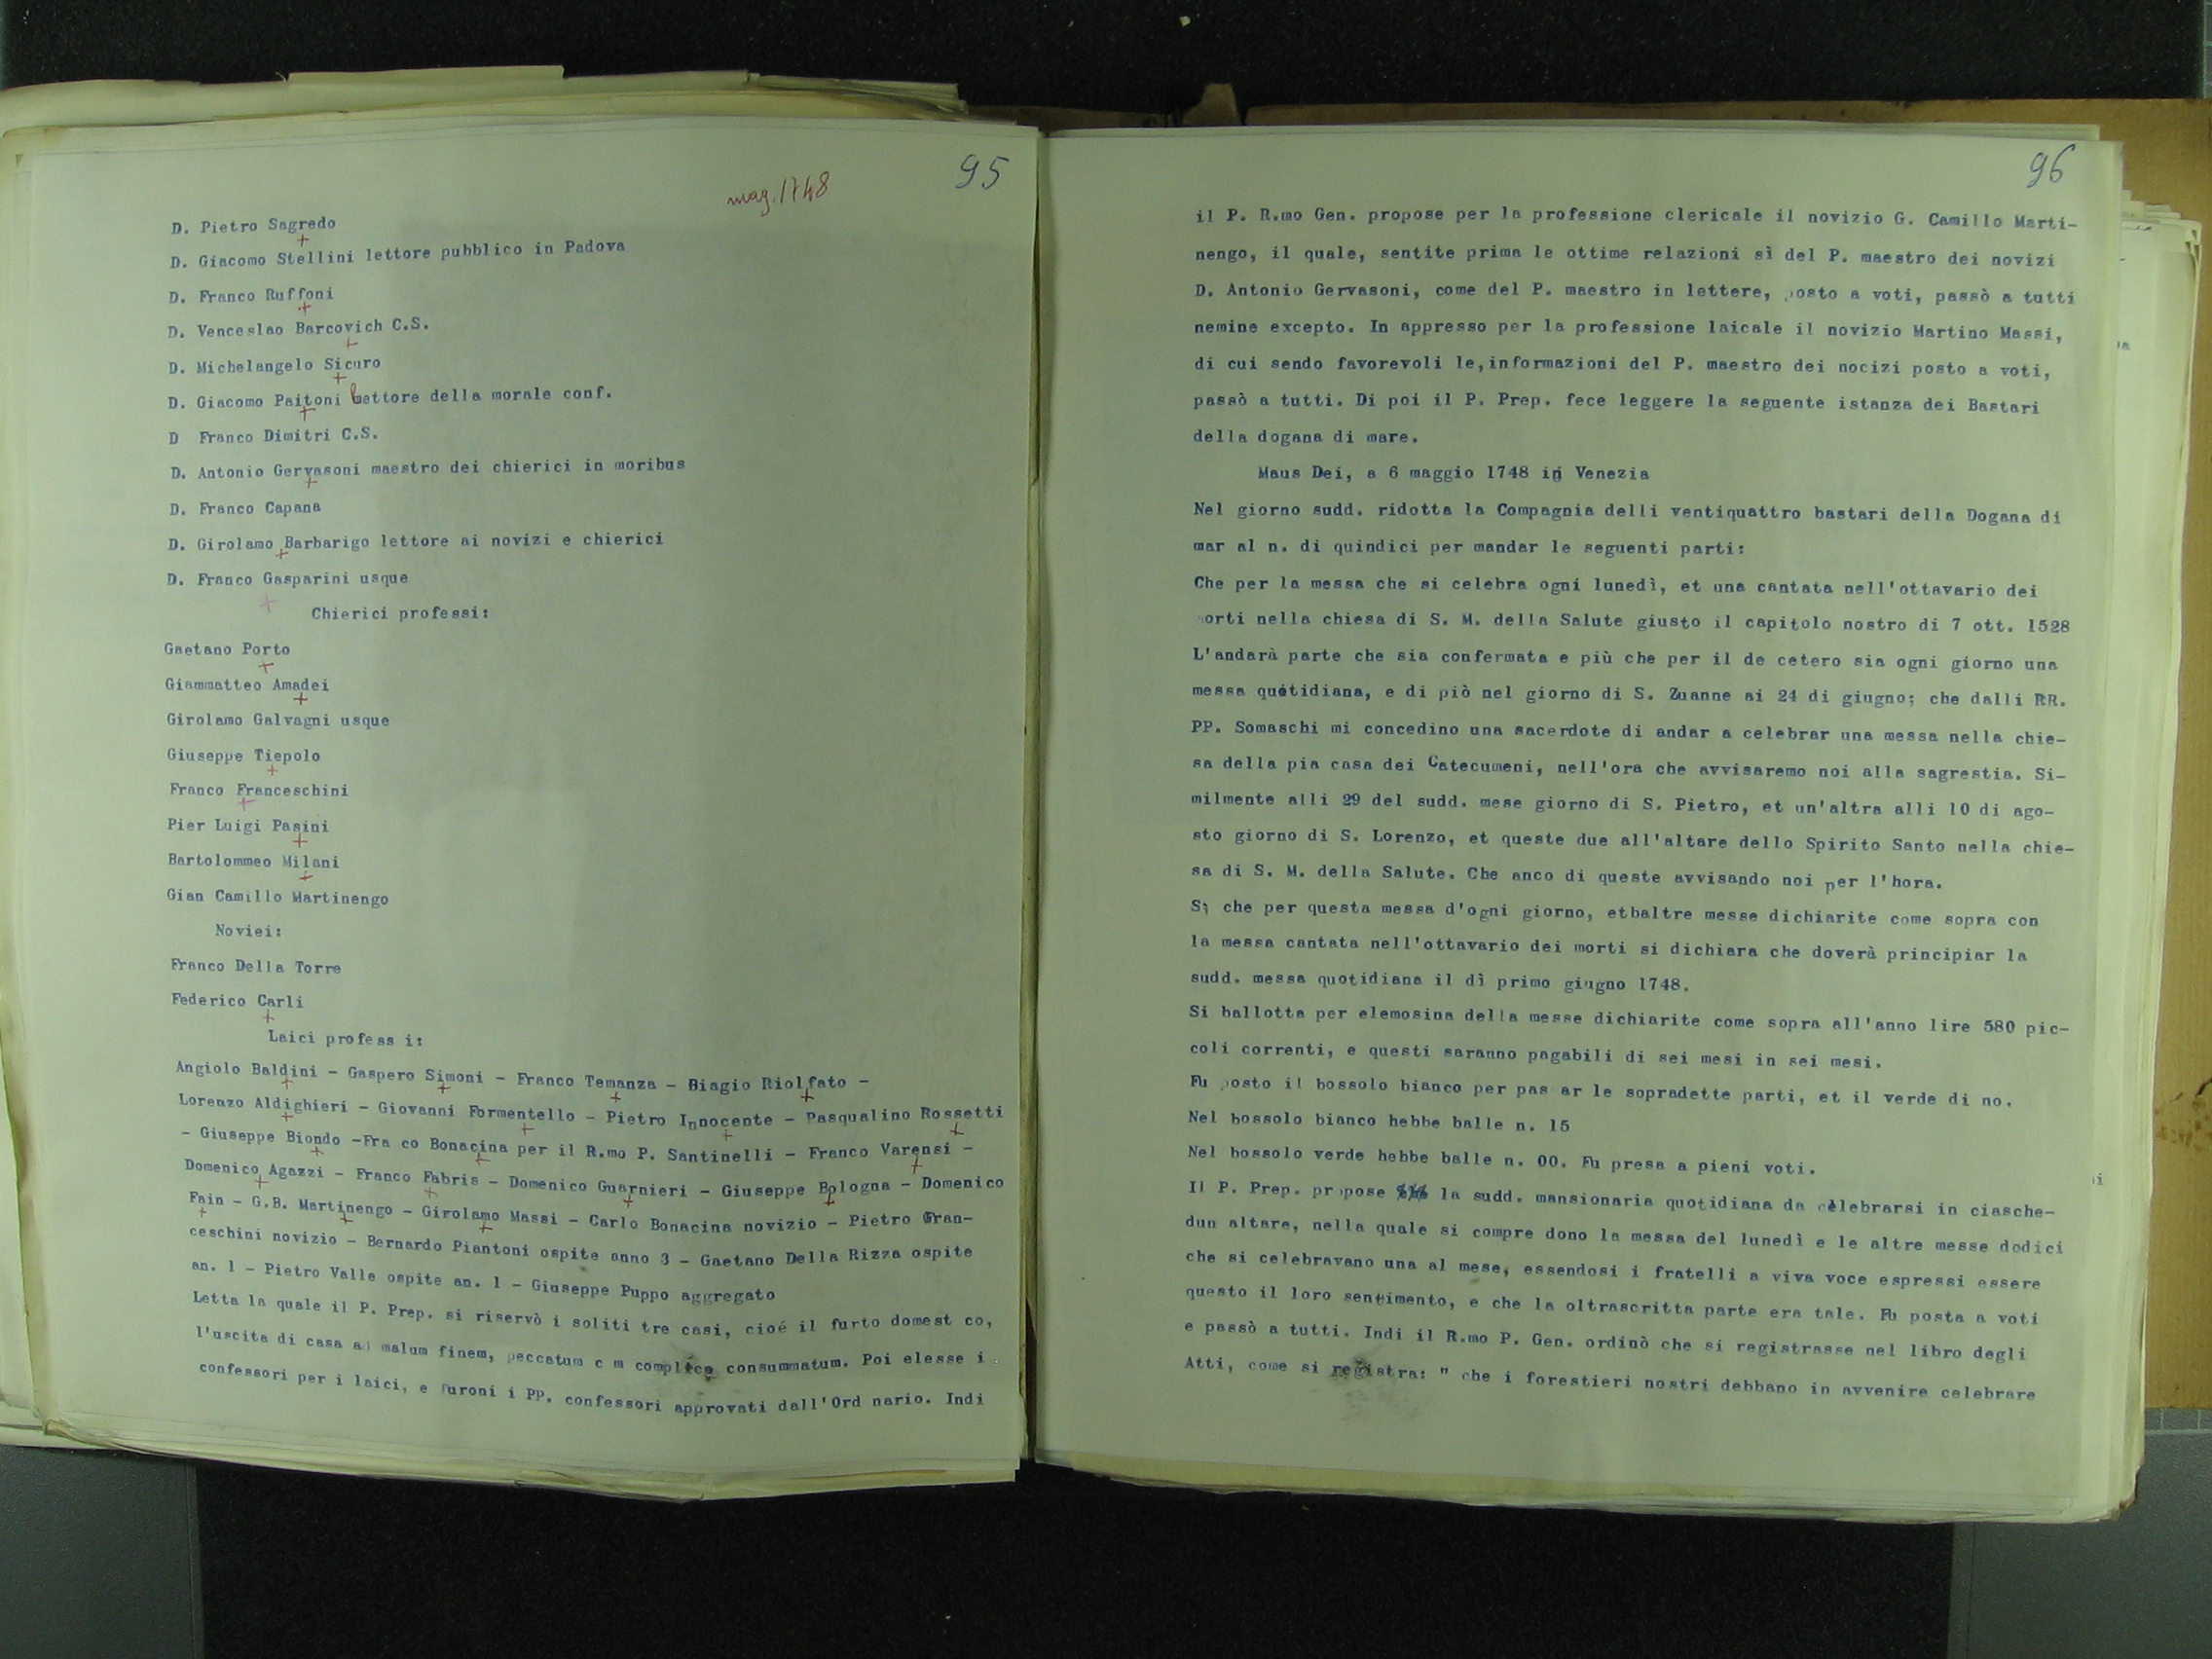 95
mag. 1748
D. Pietro Sagredo
D. Giacomo Stellini lettore pubblico in Padova
D. Franco Ruffoni
D. Venceslao Barcovich C.S.
D. Michelangelo Sicuro
D. Giacomo Paitoni lettore della morale conf.
D Franco Dimitri C.S.
D. Antonio Gervasoni maestro dei chierici in moribus
D. Franco Capana
D. Girolamo Barbarigo lettore ai novizi e chierici
D. Franco Gasparini usque
Chierici professi:
Gaetano Porto
Giammatteo Amadei
Girolamo Galvagni usque
Giuseppe Tiepolo
Franco Franceschini
Pier Luigi Pasini
Bartolommeo Milani
Gian Camillo Martinengo
Noviei:
Franco Della Torre
Federico Carli
Laici profess i:
Angiolo Baldini - Gaspero Simoni - Franco Temanza - Biagio Riolfato -
Lorenzo Aldighieri - Giovanni Formentello - Pietro Innocente - Pasqualino Rossetti
- Giuseppe Biondo -Fra co Bonacina per il R.mo P. Santinelli - Franco Varensi -
Domenico Agazzi - Franco Fabris - Domenico Guarnieri - Giuseppe Bologna - Domenico
Fain - G.B. Martinengo - Girolamo Massi - Carlo Bonacina novizio - Pietro Fran-
ceschini novizio - Bernardo Piantoni ospite anno 3 - Gaetano Della Rizza ospite
an. 1 - Pietro Valle ospite an. 1 - Giuseppe Puppo aggregato
Letta la quale il P. Prep. si riservò i soliti tre casi, cioé il furto domest co,
l'uscita di casa ad malum finem, peccatum c m complice consummatum. Poi elesse i
confessori per i laici, e furoni i PP. confessori approvati dall'Ord nario. Indi
96
il P. R.mo Gen. propose per la professione clericale il novizio G. Camillo Marti-
nengo, il quale, sentite prima le ottime relazioni sì del P. maestro dei novizi
D. Antonio Gervasoni, come del P. maestro in lettere, posto a voti, passò a tutti
nemine excepto. In appresso per la professione laicale il novizio Martino Massi,
di cui sendo favorevoli le,informazioni del P. maestro dei nocizi posto a voti,
passò a tutti. Di poi il P. Prep. fece leggere la seguente istanza dei Bastari
della dogana di mare.
Maus Dei, a 6 maggio 1748 in Venezia
Nel giorno sudd. ridotta la Compagnia delli ventiquattro bastari della Dogana di
mar al n. di quindici per mandar le seguenti parti:
Che per la messa che si celebra ogni lunedì, et una cantata nell'ottavario dei
morti nella chiesa di S. M. della Salute giusto il capitolo nostro di 7 ott. 1528
L'andarà parte che sia confermata e più che per il de cetero sia ogni giorno una
messa quotidiana, e di piò nel giorno di S. Zuanne ai 24 di giugno; che dalli RR.
PP. Somaschi mi concedino una sacerdote di andar a celebrar una messa nella chie-
sa della pia casa dei Catecumeni, nell'ora che avvisaremo noi alla sagrestia. Si-
milmente alli 29 del sudd. mese giorno di S. Pietro, et un'altra alli 10 di ago-
sto giorno di S. Lorenzo, et queste due all'altare dello Spirito Santo nella chie-
sa di S. M. della Salute. Che anco di queste avvisando noi per l'hora.
S; che per questa messa d'ogni giorno, etbaltre messe dichiarite come sopra con
la messa cantata nell'ottavario dei morti si dichiara che doverà principiar la
sudd. messa quotidiana il dì primo giugno 1748.
Si ballotta per elemosina della messe dichiarite come sopra all'anno lire 580 pic-
coli correnti, e questi saranno pagabili di sei mesi in sei mesi.
Fu posto il bossolo bianco per pas ar le sopradette parti, et il verde di no.
Nel bossolo bianco hebbe balle n. 15
Nel bossolo verde hebbe balle n. 00. Fu presa a pieni voti.
Il P. Prep. propose la sudd. mansionaria quotidiana da celebrarsi in ciasche-
dun altare, nella quale si compre dono la messa del lunedì e le altre messe dodici
che si celebravano una al mese, essendosi i fratelli a viva voce espressi essere
questo il loro sentimento, e che la oltrascritta parte era tale. Fu posta a voti
e passò a tutti. Indi il R.mo P. Gen. ordinò che si registrasse nel libro degli
Atti, come si registra: " che i forestieri nostri debbano in avvenire celebrare